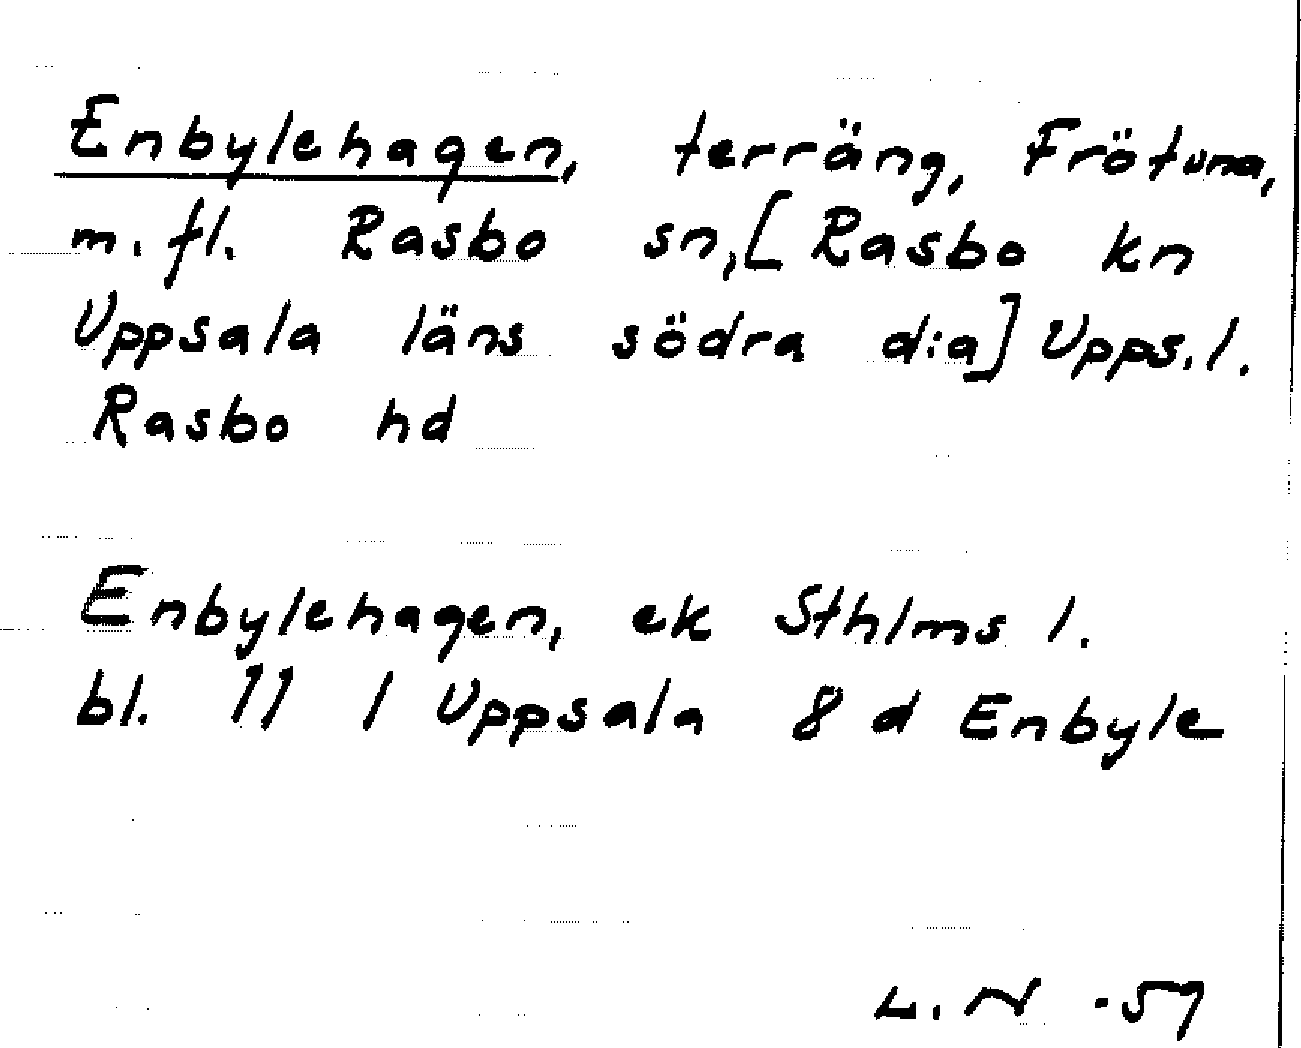 Enbylehagen, terräng, Frötuna,
m. fl. Rasbo sn, [Rasbo kn
Uppsala läns södra d:a] Upps. l.
Rasbo hd
Enbylehagen, ek Sthlms l.
bl. 11 I Uppsala 8 d Enbyle
L. N -59